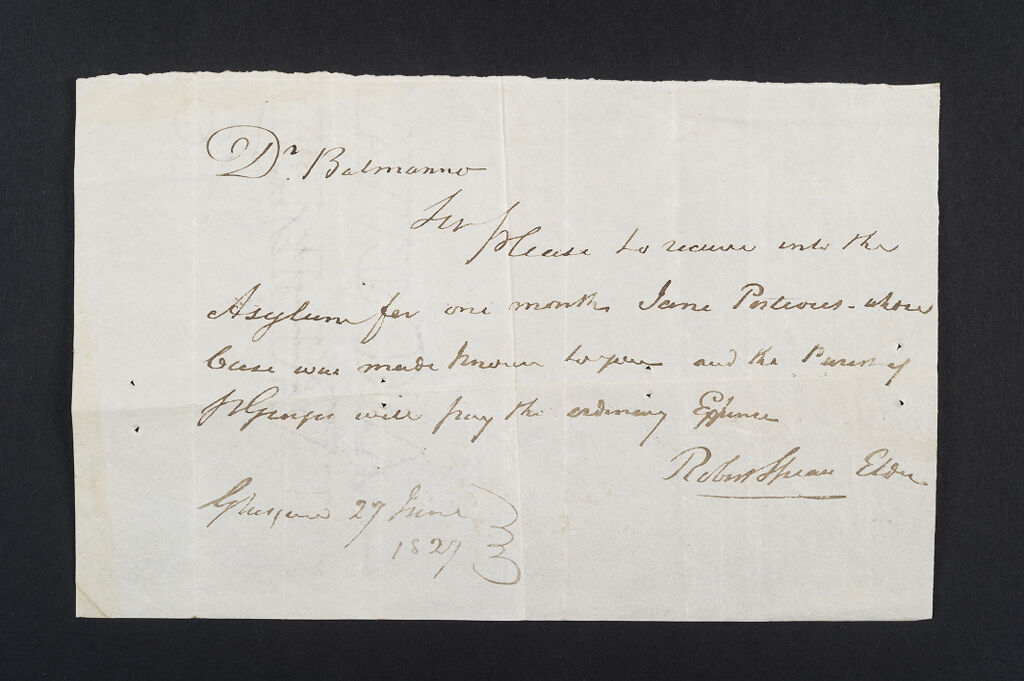 Dr. Balmanno
Sir Please to receive into the
Asylum for one month Jane Porteous - whose
Case was made known to you and the Parish of
St Georges will pay the ordinary Expence
Robert Elder
Glasgow 27 June
1827